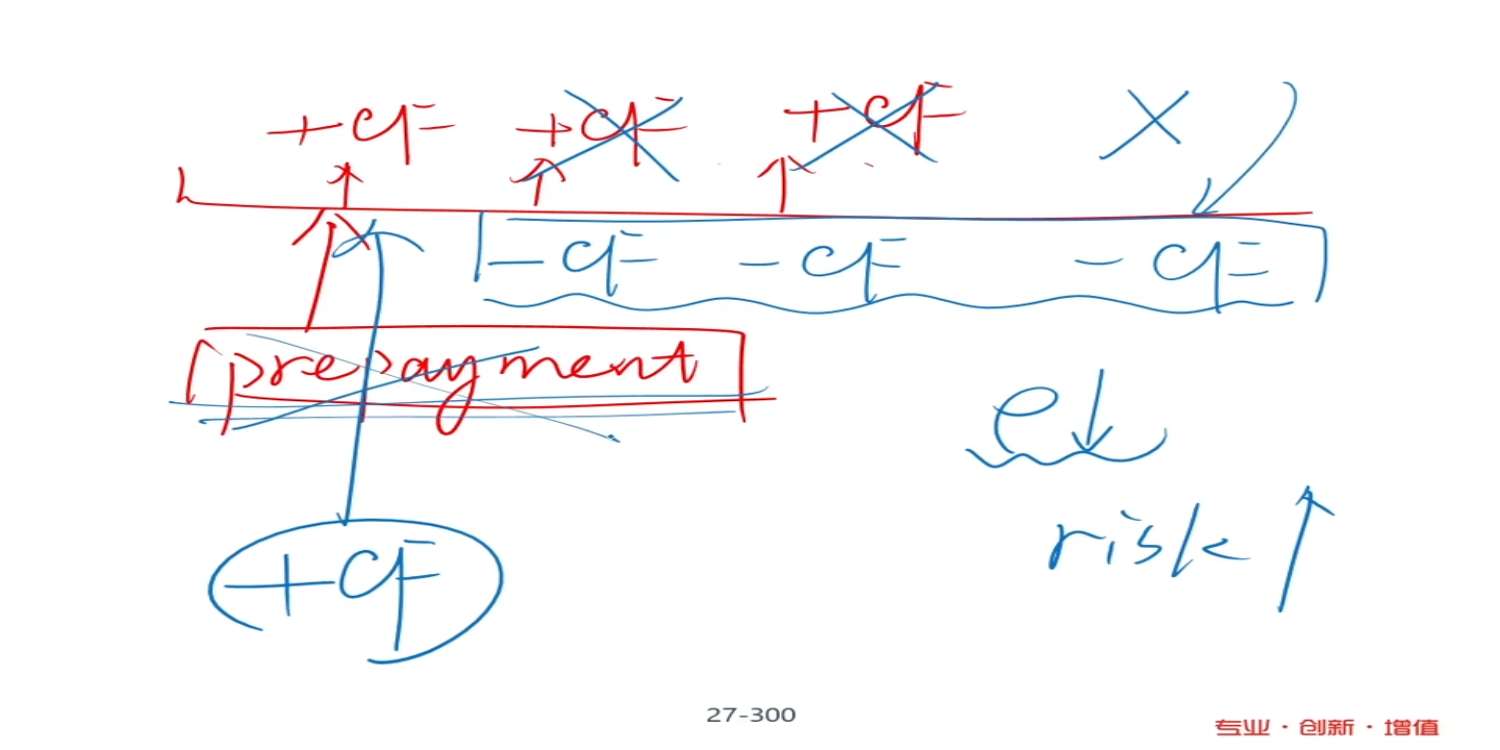 +CF +CF +CF X
-CF -CF -CF
prepayment
e↓
risk ↑
+CF
27-300
专业·创新·增值